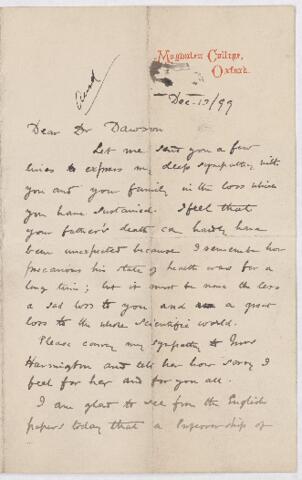 Magdalen College,
Oxford.
Dec. 13/99
Dear Dr Dawson
Let me send you a few
lines to express my deep sympathy with
you and your family in the loss which
you have sustained. I feel that
your father's death can hardly have
been unexpected because I remember how
precarious his state of health was for a
long time; but it must be none the less
a sad loss to you and a great
loss to the whole scientific world.
Please convey my sympathy to Mrs
Harrington and tell her how sorry I
feel for her and for you all.
I am glad to see from the English
papers today that a Professorship of